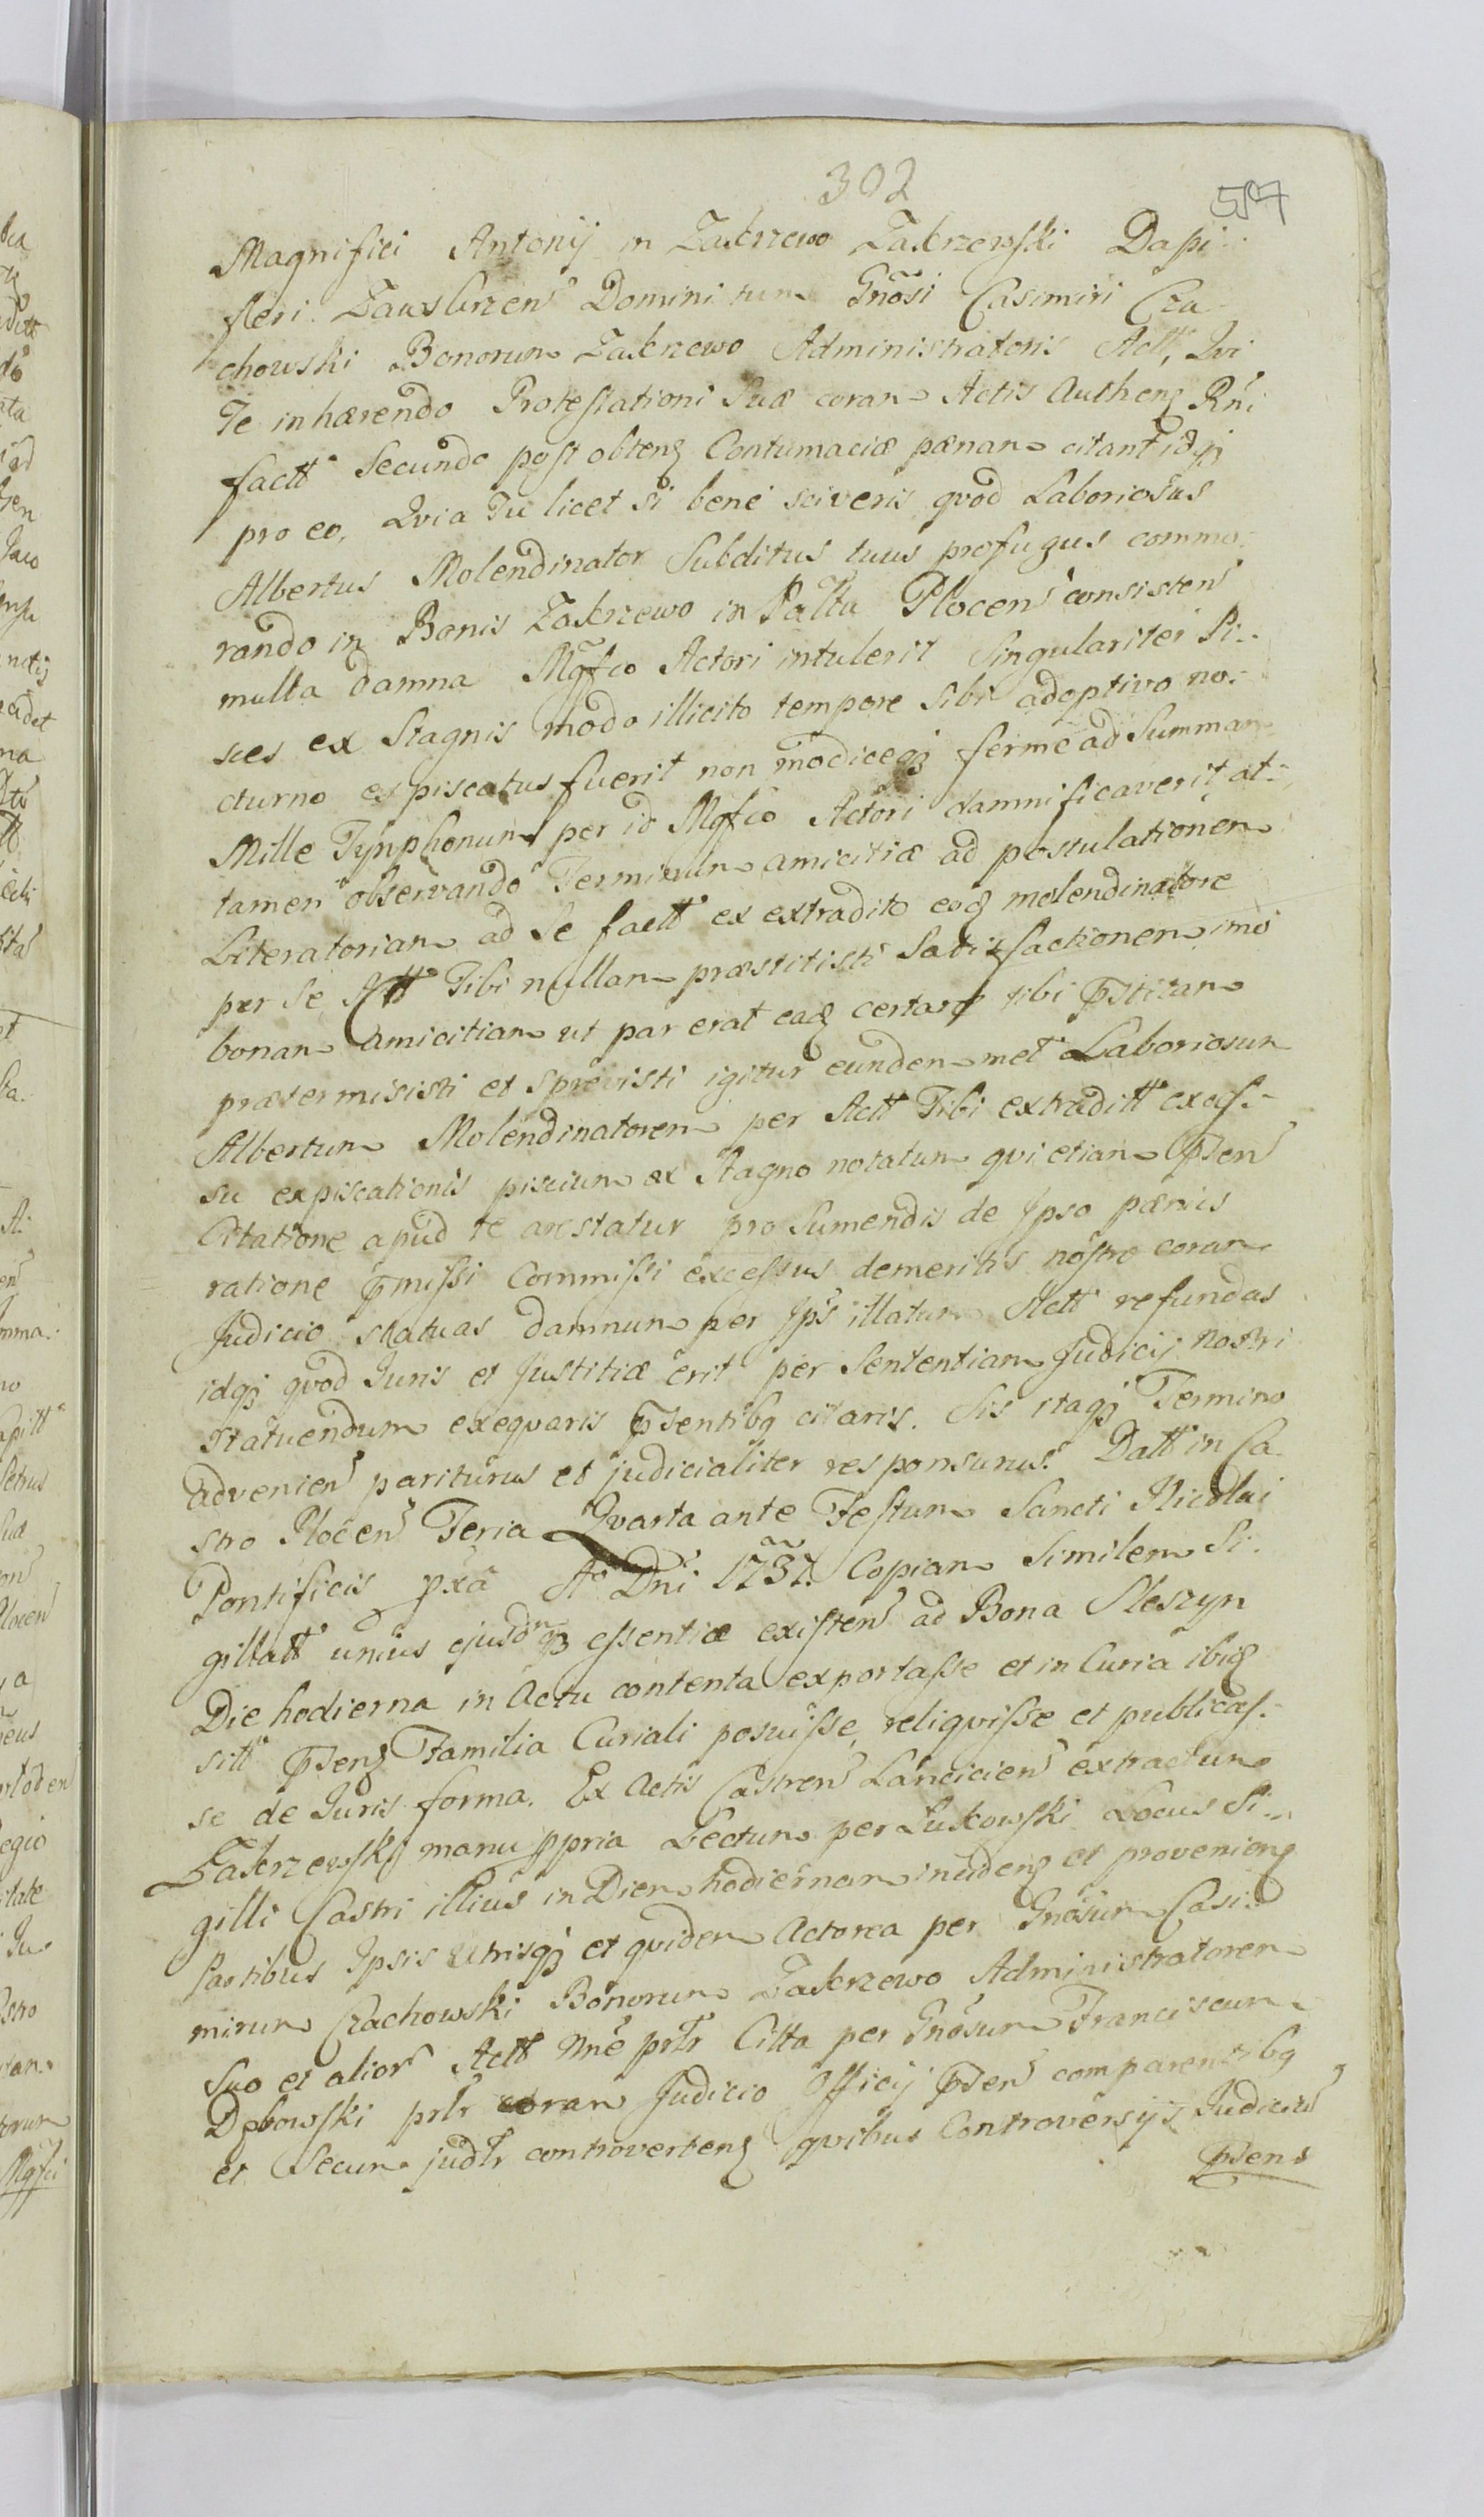 302
587
Magnifici Antonij in Zakrzewo Zakrzewski Dapi-
feri Zawskrzen Domini tum Gnosi Casimiri Cza
chowski Bonorum Zakrzewo Administratoris Actt, Qvi
Te inhærendo Protestationi Suæ coram Actis Authen Rni
factt Secundo post obten Contumaciæ pænam citant idqz
pro eo, Qvia Tu licet si bene sciveris qvod Laboriosus
Albertus Molendinator Subditus tuus profugus commo-
rando in Bonis Zakrzewo in Palttu Plocen consisten
multa damna Mgfco Actori intulerit Singulariter Pi-
sces ex Stagnis modo illicito tempore sibi adoptivo no-
cturno expiscatus fuerit non modiceqz ferme ad Summam
Mille Tynphonum per id Mgfco Actori damnificaverit, at-
tamen observando Terminum amicitiæ ad postulationem
Literatoriam ad Se factt ex extradito eod molendinatore
per Se Actt Tibi nullam præstitisti Satisfactionem imo
bonam amicitiam ut par erat ead certare tibi pstitam
prætermisisti et sprevisti igitur eundem met Laboriosum
Albertum Molendinatorem per Actt Tibi extraditt exces-
su expiscationis piscium ex Stagno notatum qvi etiam psen
Citatione apud te arestatur pro Sumendis de Ipso pænis
ratione pmissi Commissi excessus demeritis nostro coram
Judicio statuas damnum per Ips illatum Actt refundas
idqz qvod Juris et Justitiæ erit per Sententiam Judicij nostri
Statuendum exeqvaris psentibq citaris. Sis itaqz Termino
advenien pariturus et judicialiter responsurus. Datt in Ca
stro Plocen Feria Qvarta ante Festum Sancti Nicolai
Pontificis pxa Ao Dni 1737. Copiam Similem Si-
gillatt unius ejusdmqz essentiæ existen ad Bona Sleszyn
Die hodierna in Actu contenta exportasse et in Curia ibid
sitt psen Familia Curiali posuisse, reliqvisse et publicas-
se de Juris forma. Ex Actis Castren Lancicien extractum
Zakrzewski manu ppria Lectum per Łukowski Locus Si-
gilli Castri illius in Diem hodiernam inciden et provenien
Partibus Ipsis Utrisqz et qvidem Actorea per Gnosum Casi-
mirum Czachowski Bonorum Zakrzewo Administratorem
Suo et alior Actt Nne prlr Citta per Gnosum Franciscum
Dębowski prlr coram Judicio Officij psen comparentibq
et Secum judlr controverten qvibus Controversijs Judicium
psens